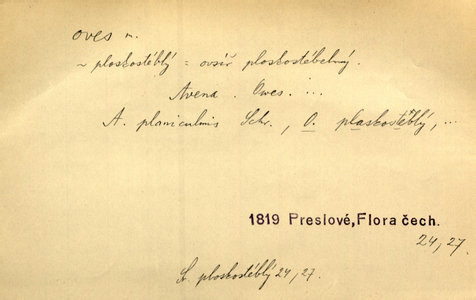 oves m.
~ ploskostéblý = ovsíř ploskostébelný.
Avena. Owes. ...
A. planiculmis Schr., O. plaskostéblý, ...
1819 Preslové, Flora čech.
24, 27.
ploskostéblý 24, 27.